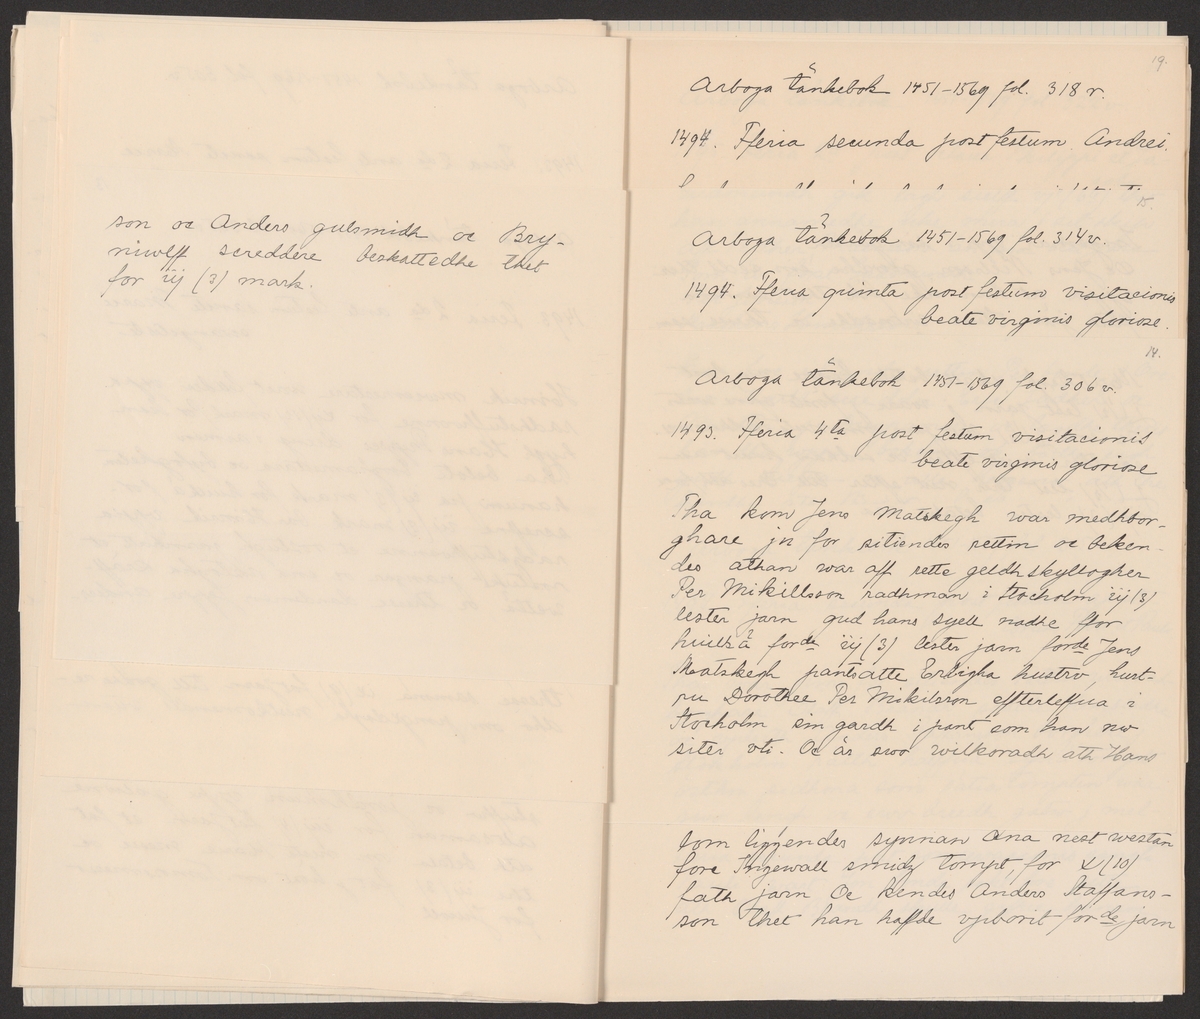 son oc Anders gulsmidh oc Bry-
niwlff screddere beskattedhe thet
for iij (3) mark.
19.
Arboga tänkebok 1451-1569 fol. 318 r.
1494. Fferia secunda post festum Andrei.
15.
Arboga tänkebok 1451-1569 fol. 314 v.
1494. Fferia quinta post festum visitacionis
beate virginis gloriose.
14.
Arboga tänkebok 1451-1569 fol. 306 v.
1493. Fferia 4ta post festum visitacionis
beate virginis gloriose
Tha kom Jens Matskegh war medhbor-
ghare jn for sitiendes rettin oc beken-
des athan war aff rette geldh skyllogher
Per Mikillsson radhman i Stocholm iij (3)
lester jarn gud hans syell nadhe ffor
huilka forde iij (3) lester jarn forde Jens
Matskegh pantsatte Erligha hustrv, hust-
ru Dorothee Per Mikilsson effterleffua i
Stocholm sin gardh i pant som han nw
siter vti. Oc är swo wilkoradh ath Hans
som liggendes synnan Ana nest westan
fore Ingewall smidz tompt, for x (10)
fath jarn Oc kendes Anders Staffans-
son thet han haffde vpborit forde jarn